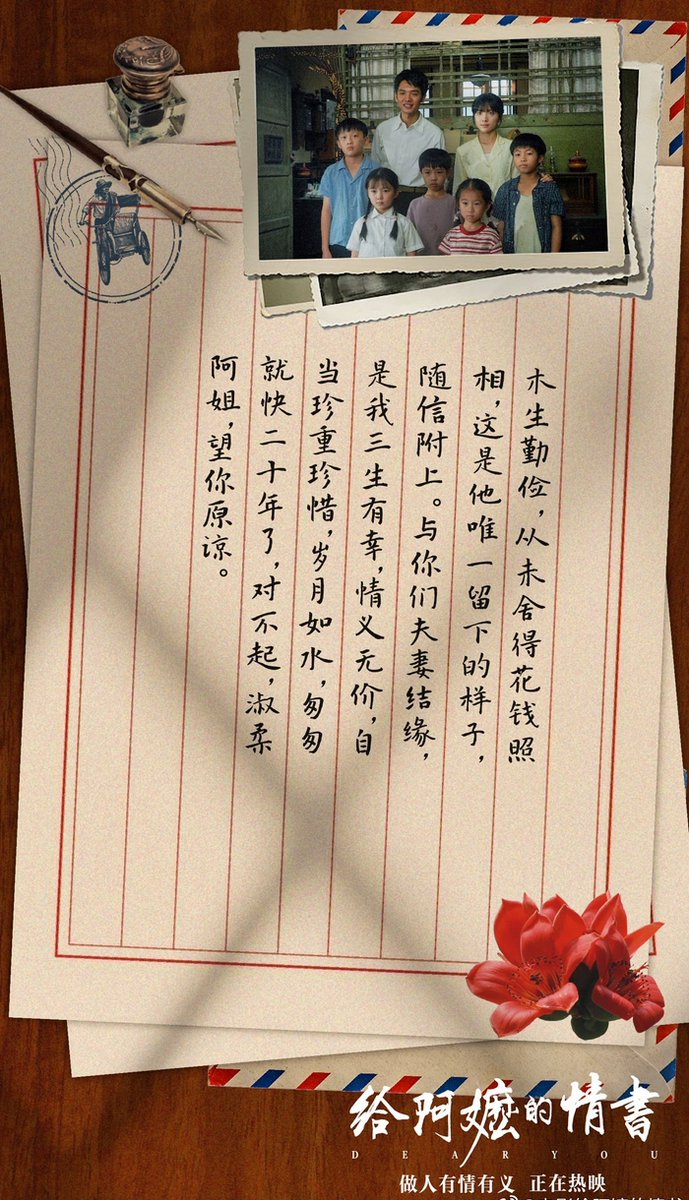 木生勤俭，从未舍得花钱照
相，这是他唯一留下的样子，
随信附上。与你们夫妻结缘，
是我三生有幸，情义无价，自
当珍重珍惜，岁月如水，匆匆
就快二十年了，对不起，淑柔
阿姐，望你原谅。
给阿嬷的情書
DEAR YOU
做人有情有义 正在热映